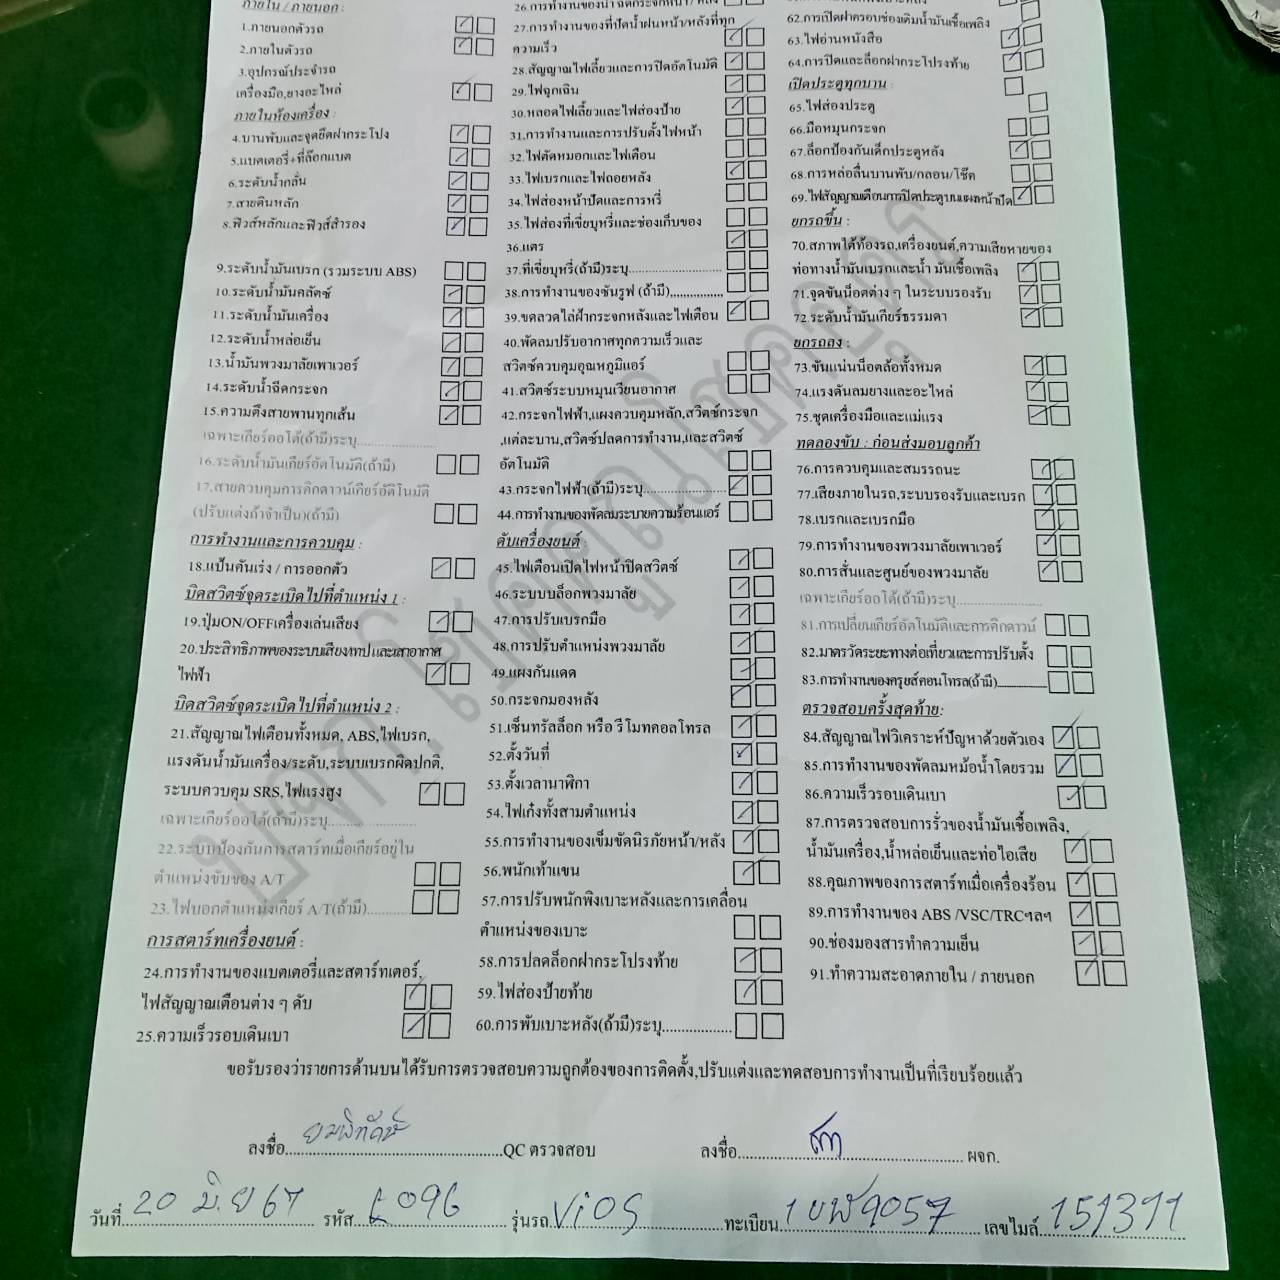 ภายใน / ภายนอก :
1.ภายนอกตัวรถ
2.ภายในตัวรถ
3.อุปกรณ์ประจำรถ
เครื่องมือ,ยางอะไหล่
ภายในห้องเครื่อง :
4.บานพับและจุดยึดฝากระโปง
5.แบตเตอรี่+ที่ล๊อกแบต
6.ระดับน้ำกลั่น
7.สายดินหลัก
8.ฟิวส์หลักและฟิวส์สำรอง
9.ระดับน้ำมันเบรก (รวมระบบ ABS)
10.ระดับน้ำมันคลัตซ์
11.ระดับน้ำมันเครื่อง
12.ระดับน้ำหล่อเย็น
13.น้ำมันพวงมาลัยเพาเวอร์
14.ระดับน้ำฉีดกระจก
15.ความตึงสายพานทุกเส้น
เฉพาะเกียร์ออโต้(ถ้ามี)ระบุ
16.ระดับน้ำมันเกียร์อัตโนมัติ(ถ้ามี)
17.สายควบคุมการคิกดาวน์เกียร์อัติโนมัติ
(ปรับแต่งถ้าจำเป็น)(ถ้ามี)
การทำงานและการควบคุม :
18.แป้นคันเร่ง / การออกตัว
บิดสวิตซ์จุดระเบิดไปที่ตำแหน่ง 1 :
19.ปุ่มON/OFFเครื่องเล่นเสียง
20.ประสิทธิภาพของระบบเสียง/เทปและเสาอากาศ
ไฟฟ้า
บิดสวิตซ์จุดระเบิดไปที่ตำแหน่ง 2 :
21.สัญญาณไฟเตือนทั้งหมด, ABS,ไฟเบรก,
แรงดันน้ำมันเครื่อง/ระดับ,ระบบเบรกผิดปกติ,
ระบบควบคุม SRS,ไฟแรงสูง
เฉพาะเกียร์ออโต้(ถ้ามี)ระบุ
22.ระบบป้องกันการสตาร์ทเมื่อเกียร์อยู่ใน
ตำแหน่งขับของ A/T
23.ไฟบอกตำแหน่งเกียร์ A/T(ถ้ามี)
การสตาร์ทเครื่องยนต์ :
24.การทำงานของแบตเตอรี่และสตาร์ทเตอร์,
ไฟสัญญาณเตือนต่าง ๆ ดับ
25.ความเร็วรอบเดินเบา
26.การทำงานของน้ำฉีดกระจกหน้า/หลัง
27.การทำงานของที่ปัดน้ำฝนหน้า/หลังที่ทุก
ความเร็ว
28.สัญญาณไฟเลี้ยวและการปิดอัตโนมัติ
29.ไฟฉุกเฉิน
30.หลอดไฟเลี้ยวและไฟส่องป้าย
31.การทำงานและการปรับตั้งไฟหน้า
32.ไฟตัดหมอกและไฟเตือน
33.ไฟเบรกและไฟถอยหลัง
34.ไฟส่องหน้าปัดและการหรี่
35.ไฟส่องที่เขี่ยบุหรี่และช่องเก็บของ
36.แตร
37.ที่เขี่ยบุหรี่(ถ้ามี)ระบุ
38.การทำงานของซันรูฟ (ถ้ามี)
39.ขดลวดไล่ฝ้ากระจกหลังและไฟเตือน
40.พัดลมปรับอากาศทุกความเร็วและ
สวิตซ์ควบคุมอุณหภูมิแอร์
41.สวิตซ์ระบบหมุนเวียนอากาศ
42.กระจกไฟฟ้า,แผงควบคุมหลัก,สวิตซ์กระจก
,แต่ละบาน,สวิตซ์ปลดการทำงาน,และสวิตซ์
อัตโนมัติ
43.กระจกไฟฟ้า(ถ้ามี)ระบุ
44.การทำงานของพัดลมระบายความร้อนแอร์
ดับเครื่องยนต์ :
45.ไฟเตือนเปิดไฟหน้าปิดสวิตซ์
46.ระบบบล็อกพวงมาลัย
47.การปรับเบรกมือ
48.การปรับตำแหน่งพวงมาลัย
49.แผงกันแดด
50.กระจกมองหลัง
51.เซ็นทรัลล็อก หรือ รีโมทคอลโทรล
52.ตั้งวันที่
53.ตั้งเวลานาฬิกา
54.ไฟเก๋งทั้งสามตำแหน่ง
55.การทำงานของเข็มขัดนิรภัยหน้า/หลัง
56.พนักเท้าแขน
57.การปรับพนักพิงเบาะหลังและการเคลื่อน
ตำแหน่งของเบาะ
58.การปลดล็อกฝากระโปรงท้าย
59.ไฟส่องป้ายท้าย
60.การพับเบาะหลัง(ถ้ามี)ระบุ
62.การเปิดฝาครอบช่องเติมน้ำมันเชื้อเพลิง
63.ไฟอ่านหนังสือ
64.การปิดและล็อกฝากระโปรงท้าย
เปิดประตูทุกบาน :
65.ไฟส่องประตู
66.มือหมุนกระจก
67.ล็อกป้องกันเด็กประตูหลัง
68.การหล่อลื่นบานพับ/กลอน/โช๊ค
69.ไฟสัญญาณเตือนการปิดประตูบนแผงหน้าปัด
ยกรถขึ้น :
70.สภาพใต้ท้องรถ,เครื่องยนต์,ความเสียหายของ
ท่อทางน้ำมันเบรกและน้ำ มันเชื้อเพลิง
71.จุดขันน็อตต่าง ๆ ในระบบรองรับ
72.ระดับน้ำมันเกียร์ธรรมดา
ยกรถลง :
73.ขันแน่นน็อตล้อทั้งหมด
74.แรงดันลมยางและอะไหล่
75.ชุดเครื่องมือและแม่แรง
ทดลองขับ : ก่อนส่งมอบลูกค้า
76.การควบคุมและสมรรถนะ
77.เสียงภายในรถ,ระบบรองรับและเบรก
78.เบรกและเบรกมือ
79.การทำงานของพวงมาลัยเพาเวอร์
80.การสั่นและศูนย์ของพวงมาลัย
เฉพาะเกียร์ออโต้(ถ้ามี)ระบุ
81.การเปลี่ยนเกียร์อัตโนมัติและการคิกดาวน์
82.มาตรวัดระยะทางต่อเที่ยวและการปรับตั้ง
83.การทำงานของครุยส์คอนโทรล(ถ้ามี)
ตรวจสอบครั้งสุดท้าย:
84.สัญญาณไฟวิเคราะห์ปัญหาด้วยตัวเอง
85.การทำงานของพัดลมหม้อน้ำโดยรวม
86.ความเร็วรอบเดินเบา
87.การตรวจสอบการรั่วของน้ำมันเชื้อเพลิง,
น้ำมันเครื่อง,น้ำหล่อเย็นและท่อไอเสีย
88.คุณภาพของการสตาร์ทเมื่อเครื่องร้อน
89.การทำงานของ ABS /VSC/TRCฯลฯ
90.ช่องมองสารทำความเย็น
91.ทำความสะอาดภายใน / ภายนอก
ขอรับรองว่ารายการด้านบนได้รับการตรวจสอบความถูกต้องของการติดตั้ง,ปรับแต่งและทดสอบการทำงานเป็นที่เรียบร้อยแล้ว
ลงชื่อ QC ตรวจสอบ ลงชื่อ ผจก.
วันที่ 20 มิ.ย 67 รหัส 096 รุ่นรถ ViOS ทะเบียน 9057 เลขไมล์ 151391